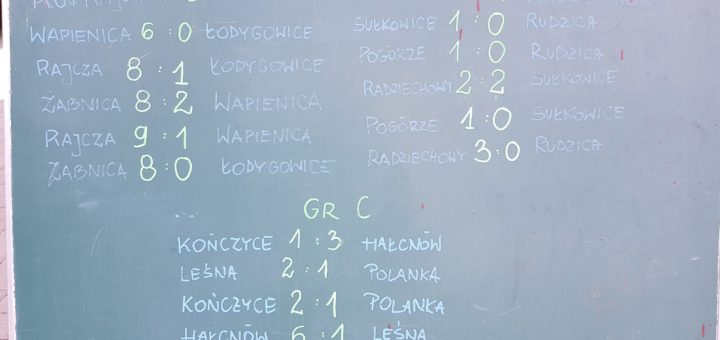 WAPIENICA 6 : 0 ŁODYGOWICE
RAJCZA 8 : 1 ŁODYGOWICE
ŻABNICA 8 : 2 WAPIENICA
RAJCZA 9 : 1 WAPIENICA
ŻABNICA 8 : 0 ŁODYGOWICE
SUŁKOWICE 1 : 0 RUDZICA
POGÓRZE 1 : 0 RUDZICA
RADZIECHOWY 2 : 2 SUŁKOWICE
POGÓRZE 1 : 0 SUŁKOWICE
RADZIECHOWY 3 : 0 RUDZICA
GR C
KOŃCZYCE 1 : 3 HAŁCNÓW
LEŚNA 2 : 1 POLANKA
KOŃCZYCE 2 : 1 POLANKA
HAŁCNÓW 6 : 1 LEŚNA